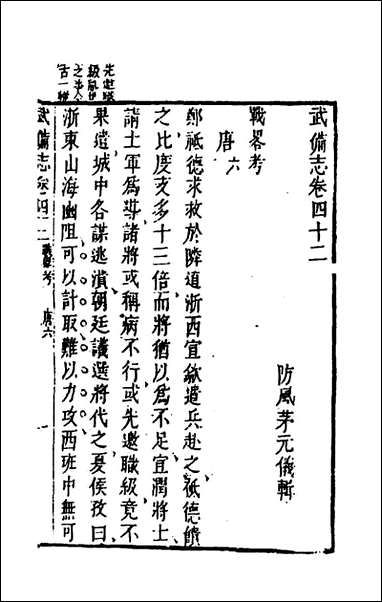 武備志卷四十二
防風茅元儀輯
戰畧考
唐六
鄭祗德求救於隣道浙西宣歙遣兵赴之祗德饋
之比度支多十三倍而將猶以爲不足宣潤將士
請土軍爲導諸將或稱病不行或先邀職級竟不
果遣城中各謀逃潰朝廷議選將代之夏侯孜曰
浙東山海幽阻可以計取難以力攻西班中無可
先邀職
級
之事今
古一轍
武備志卷四十二 戰畧考 唐六 一